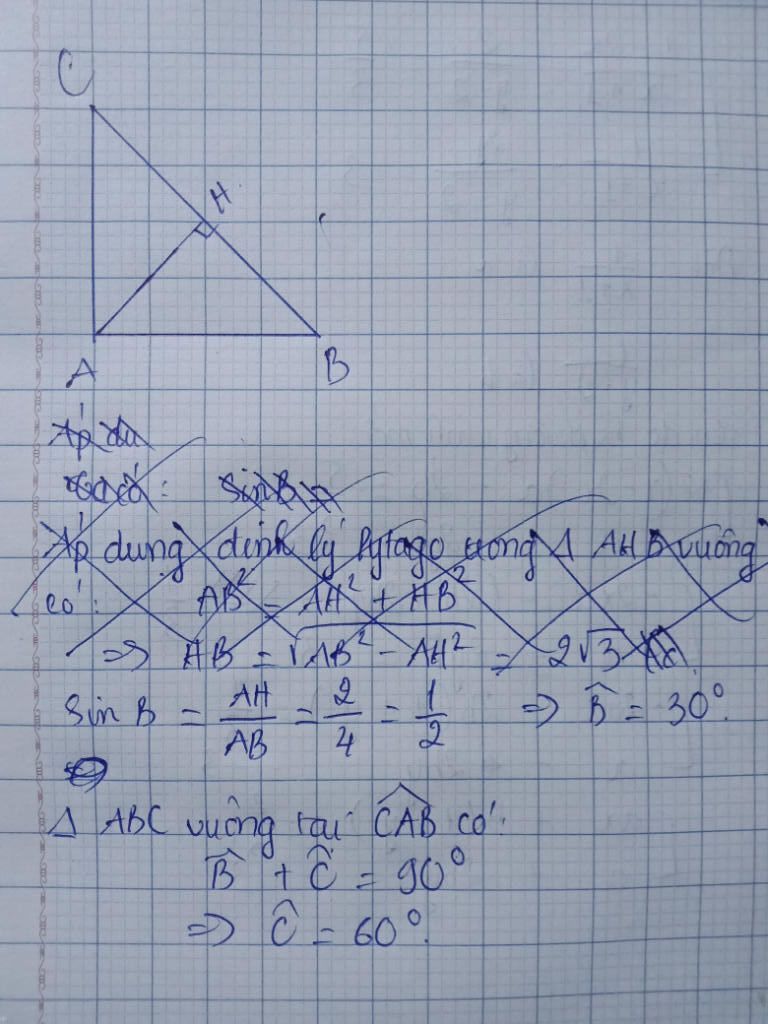 C
H
A
B
Áp dụ
Ta có: sin B =
Áp dụng định lý Pytago trong Δ AHB vuông
có: AB² = AH² + HB²
=> HB = √(AB² - AH²) = 2√3
Sin B = AH/AB = 2/4 = 1/2 => B̂ = 30°.
Δ ABC vuông tại \widehat{CAB} có:
B̂ + Ĉ = 90°
=> Ĉ = 60°.